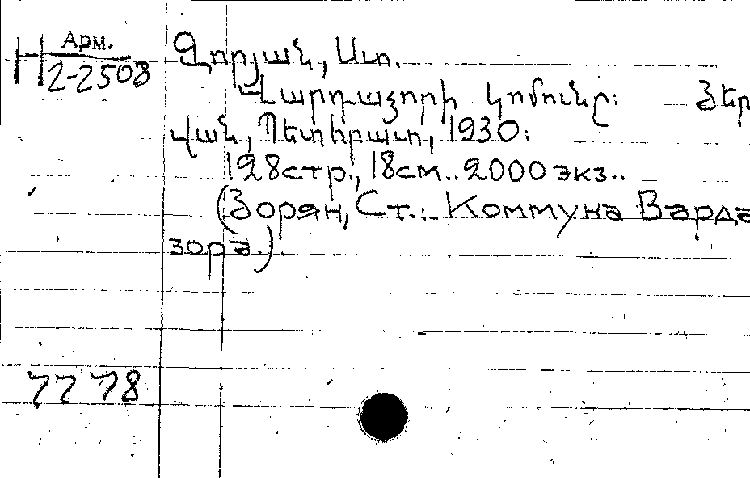 Арм.
Н 2-2508
Զորյան, Ստ.
Վարդաձորի կոմունը: Յեր
վան, Պետհրատ, 1930:
128 стр., 18 см.. 2000 экз..
(Зорян, Ст.. Коммуна Варда
зора.).
7778